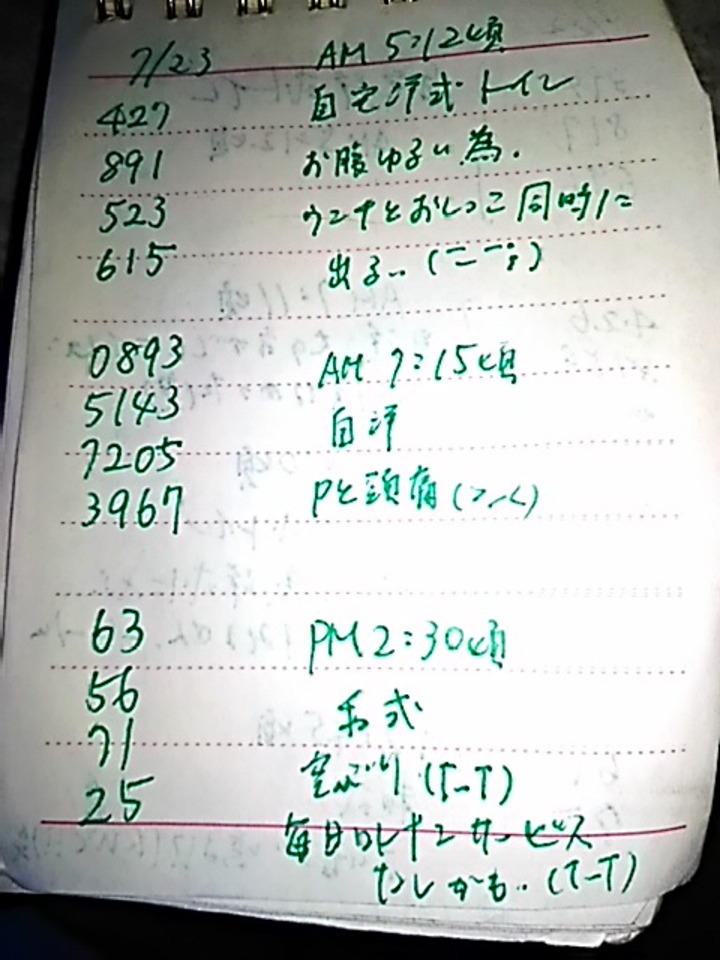 7/23 AM 5:12頃
427 自宅洋式トイレ
891 お腹ゆるい為.
523 ウンチとおしっこ同時に
615 出る..(ーー;)
0893 AM 7:15頃
5143 自洋
7205 Pと頭痛(>_<)
3967
63 PM2:30頃
56 和式
71 空ぶり(T-T)
25 毎日
なしかも..(T-T)